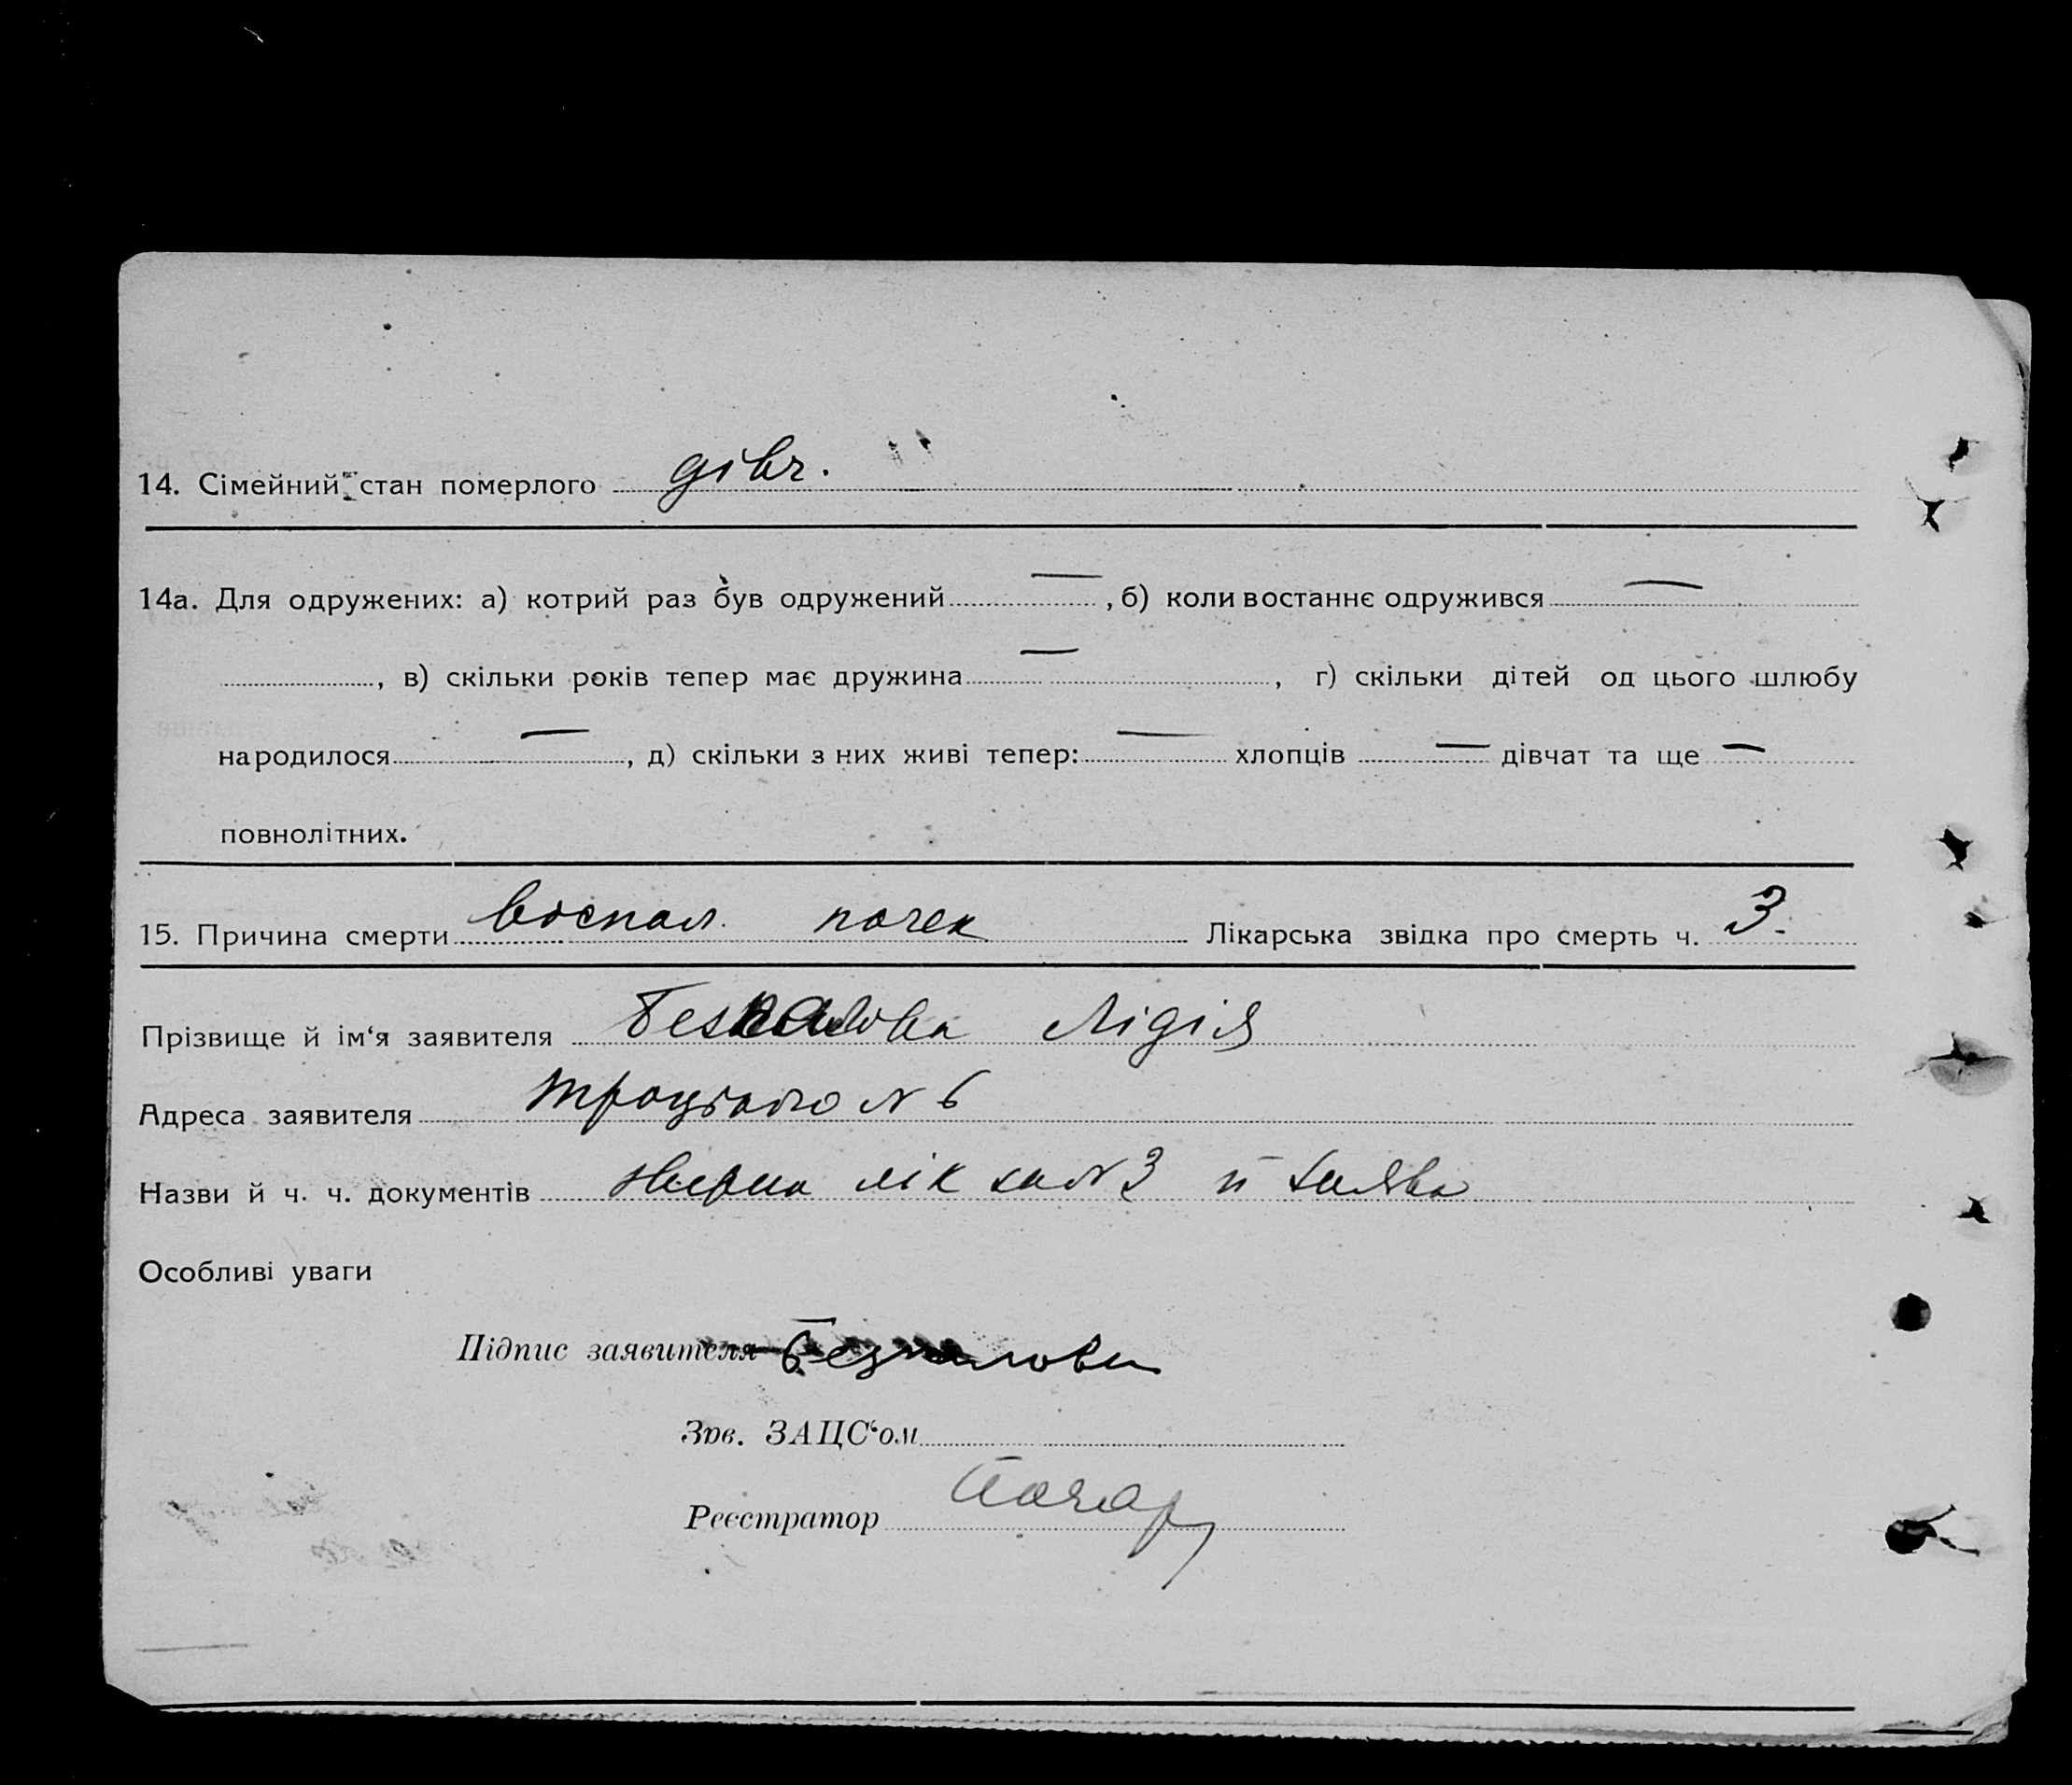 14. Сімейний стан померлого дівч.
14а. Для одружених: а) котрий раз був одружений — , б) коли востаннє одружився —
, в) скільки років тепер має дружина — , г) скільки дітей од цього шлюбу
народилося — , д) скільки з них живі тепер: — хлопців — дівчат та ще —
повнолітних.
15. Причина смерти воспал. почек Лікарська звідка про смерть ч. 3.
Прізвище й ім‘я заявителя Лідія
Адреса заявителя Троцького № 6
Назви й ч. ч. документів лік за № 3 й заява
Особливі уваги
Підпис заявителя
Зав. ЗАЦС‘ом
Реєстратор